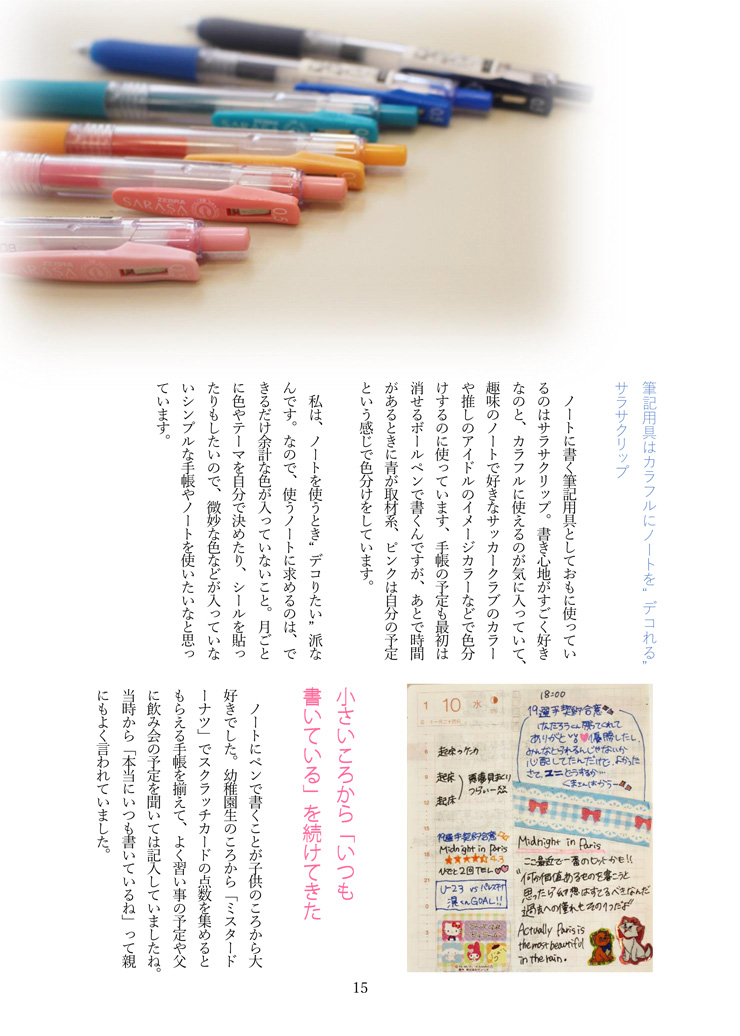 筆記用具はカラフルにノートを“デコれる”
サラサクリップ
ノートに書く筆記用具としておもに使ってい
るのはサラサクリップ。書き心地がすごく好き
なのと、カラフルに使えるのが気に入っていて、
趣味のノートで好きなサッカークラブのカラー
や推しのアイドルのイメージカラーなどで色分
けするのに使っています、手帳の予定も最初は
消せるボールペンで書くんですが、あとで時間
があるときに青が取材系、ピンクは自分の予定
という感じで色分けをしています。
私は、ノートを使うとき“デコりたい”派な
んです。なので、使うノートに求めるのは、で
きるだけ余計な色が入っていないこと。月ごと
に色やテーマを自分で決めたり、シールを貼っ
たりもしたいので、微妙な色などが入っていな
いシンプルな手帳やノートを使いたいなと思っ
ています。
小さいころから「いつも
書いている」を続けてきた
ノートにペンで書くことが子供のころから大
好きでした。幼稚園生のころから「ミスタード
ーナツ」でスクラッチカードの点数を集めると
もらえる手帳を揃えて、よく習い事の予定や父
に飲み会の予定を聞いては記入していましたね。
当時から「本当にいつも書いているね」って親
にもよく言われていました。
ZEBRA
SARASA
SARASA
1 10 水
起床
起床
Midnight in Paris
4.3
ひでと2回TEL
U-23 VS パレスチナ
滉くんGOAL!!
18:00
19選手契約合意
けんたろうくん勝ってくれて
ありがといる優勝したし、
みんなとられるんじゃないか
心配してたんだけど、よかった
Midnight in Paris
ここ最近で一番のヒットかも!!
Actually Paris is
the most beautiful
in the rain.
15